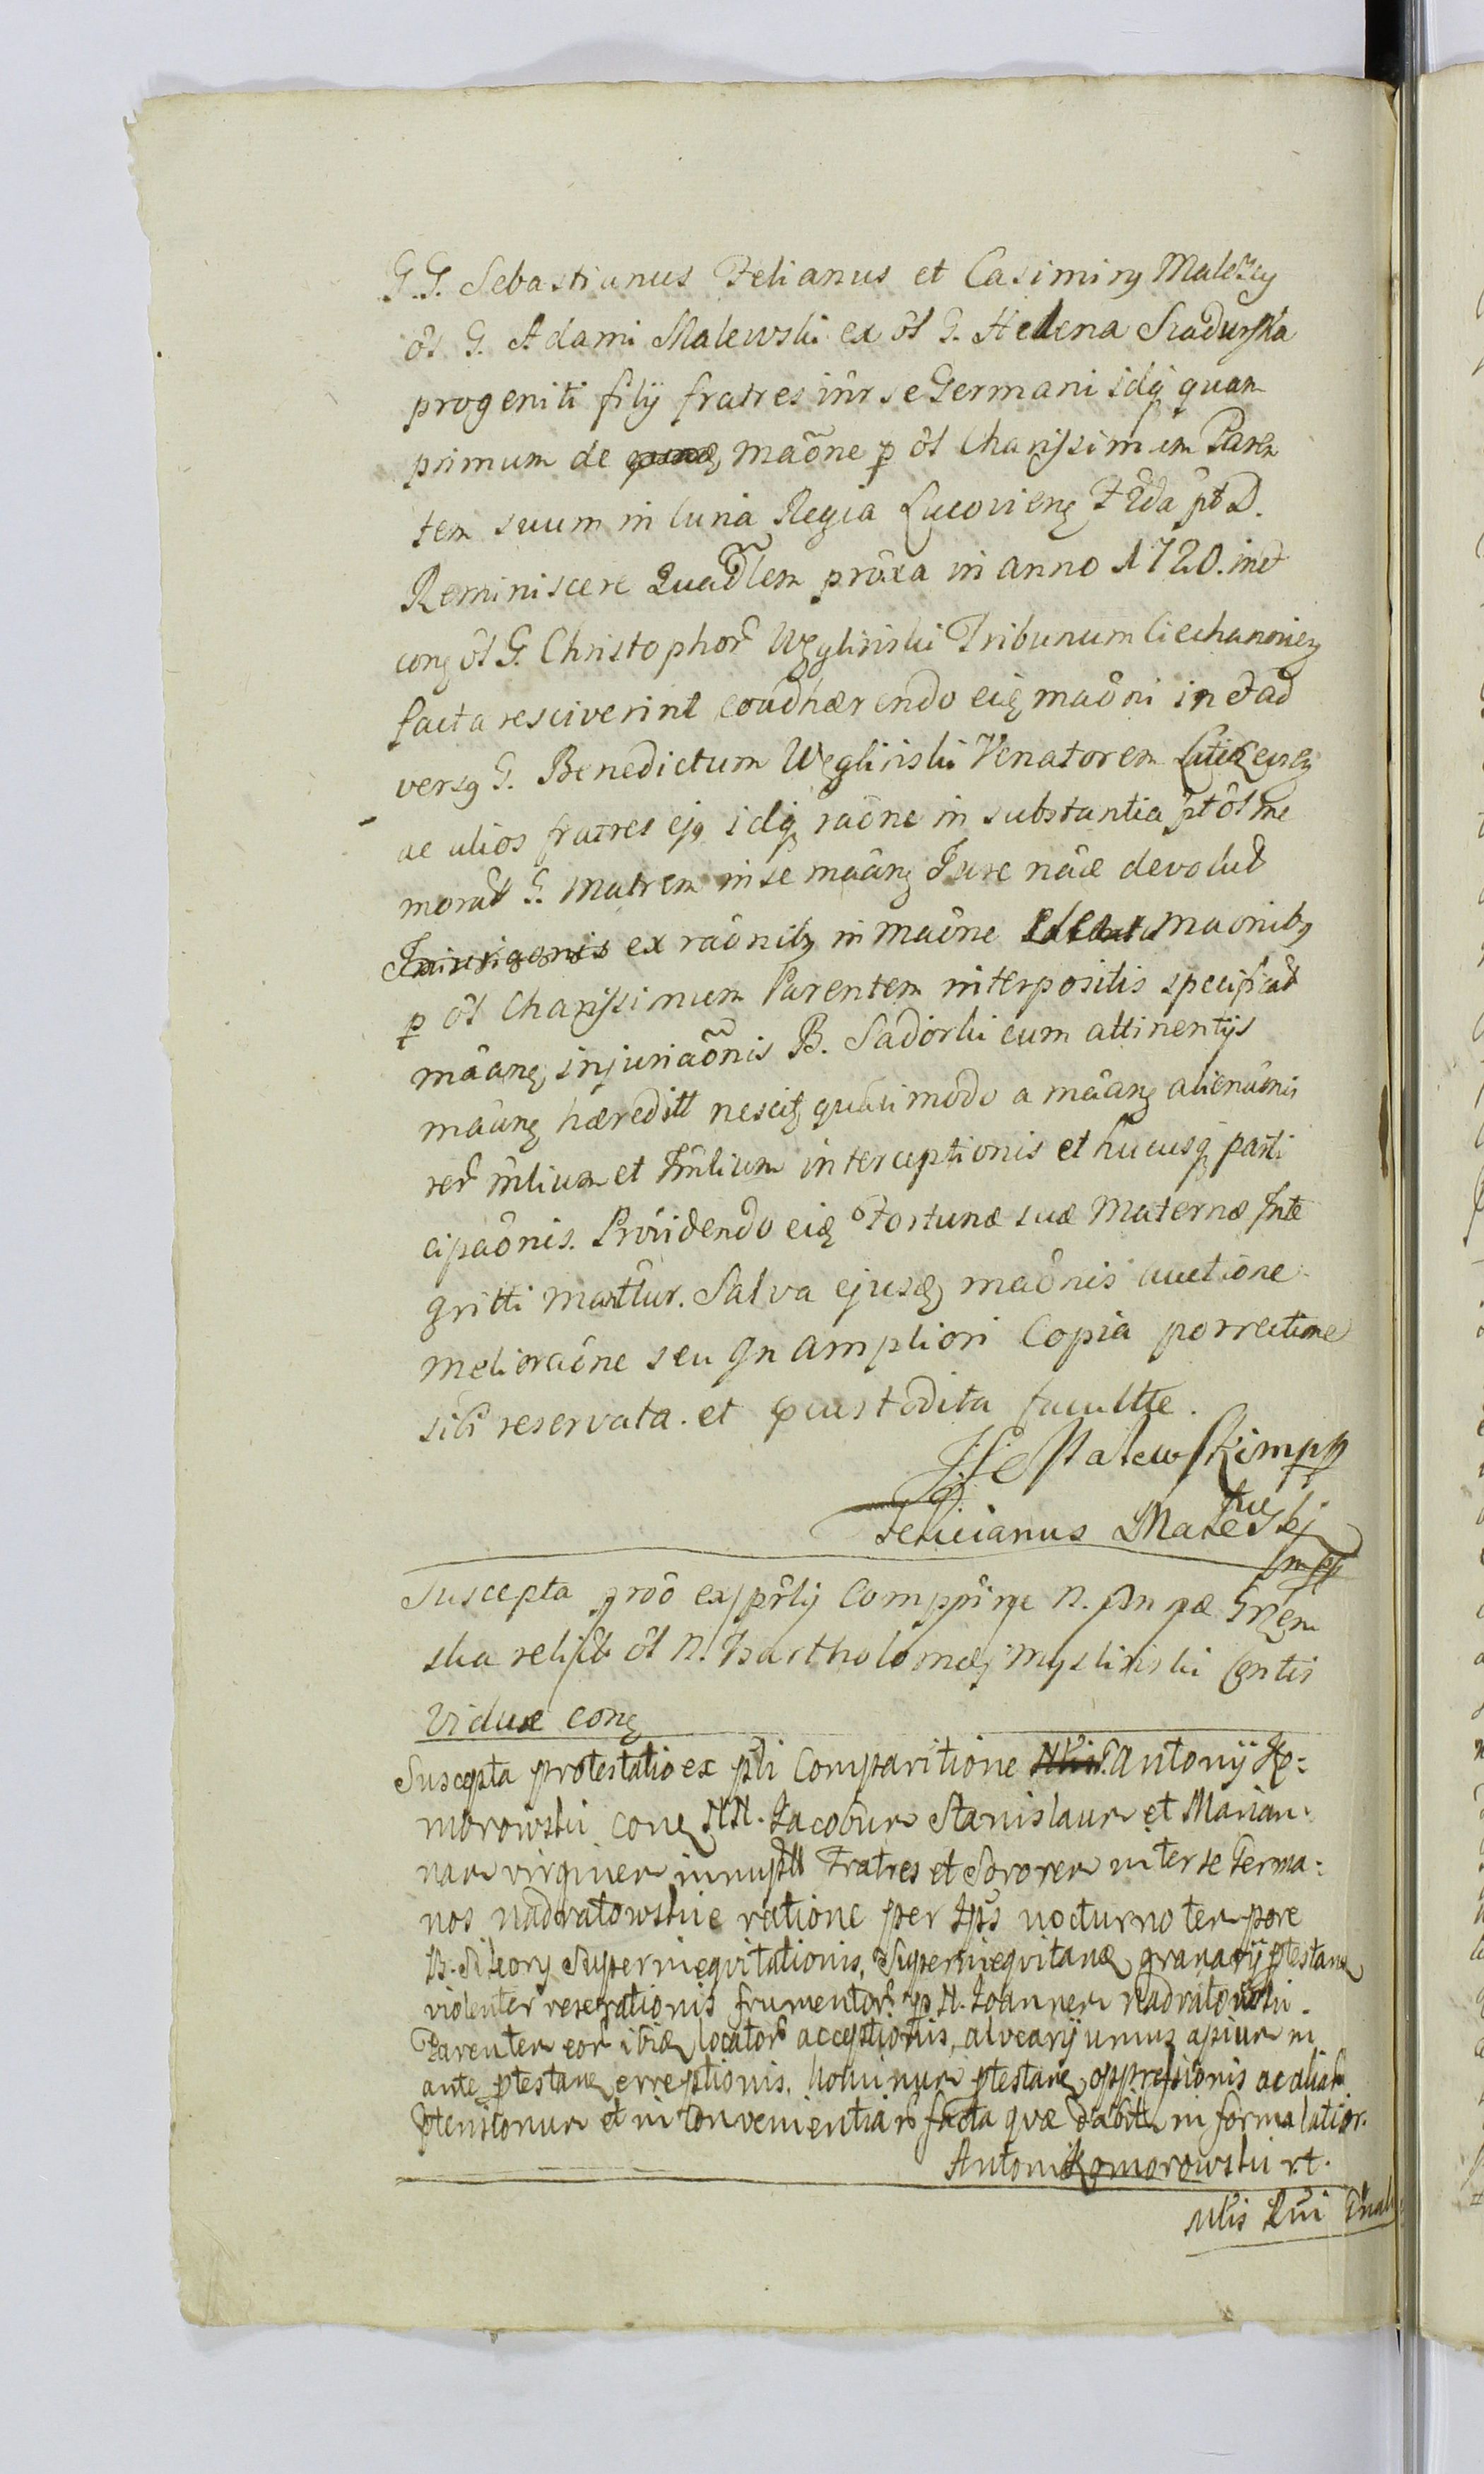 G.G. Sebastianus Felianus et Casimirg Malewscy
ôl G. Adami Malewski ex ôl G. Helena Siadurska
progeniti filij fratres inr se Germani idq quam
primum de maône p ôl Charissimum Paren
tem suum in Curia Regia Lucoviens Frda pt D.
Reminiscere Quadlem prôxa in anno 1720. in et
cong ôl G. Christophor Węgliński Tribunum Ciechanoviens
facta resciverint eoadhærendo eiq maôni in et ad
versg G. Benedictum Węgliński Venatorem
ac alios fratres ejg idq raône in substantia pt ôl me
morat G. Matrem in se mâang Jure nâæ devolut
ex raônibg in maône maonibg
p ôl Charissimum Parentem interpositis specificat
mâang injuriaônis B. Sadorki cum attinentijs
mâang hæreditt nescitg quali modo a mâang alienâonis
rer mlium et Imlium interceptionis et hucusq parti
cipaônis. Prôvidendo eiq Fortunæ suæ Maternæ Inte
gritti Mattur. Salva ejusq maônis auctione
melioraône seu qn ampliori Copia porrectione
sibi reservata. et pcustodita facultte.
Malewski mpp
Felicianus Malewskj
mpp
Suscepta proô ex prlij Comppârne N. Annæ
ska relict ôl N. Bartholomæj Myslinski
Viduæ cong
Suscepta protestatio ex pli Comparitione G Antonij Ko=
morowski cong NN. Jacobum Stanislaum et Marian=
nam virginem innuptt Fratres et Sororem inter se Germa=
nos Nadratowskie ratione per Ips nocturno tempore
B. Sikory Superinequitationis, Superinequitang granarij ptestang
violenter reserationis frumentor p N. Joannem Nadratowski
Parentem eor ibiq locator acceptionis, alvearij unius apium in
ante ptestang erreptionis. hominum ptestang oppressionis ac aliar
ptensionum et in convenientiar facta quæ dabitr in forma latior.
Antoni Komorowski rt.